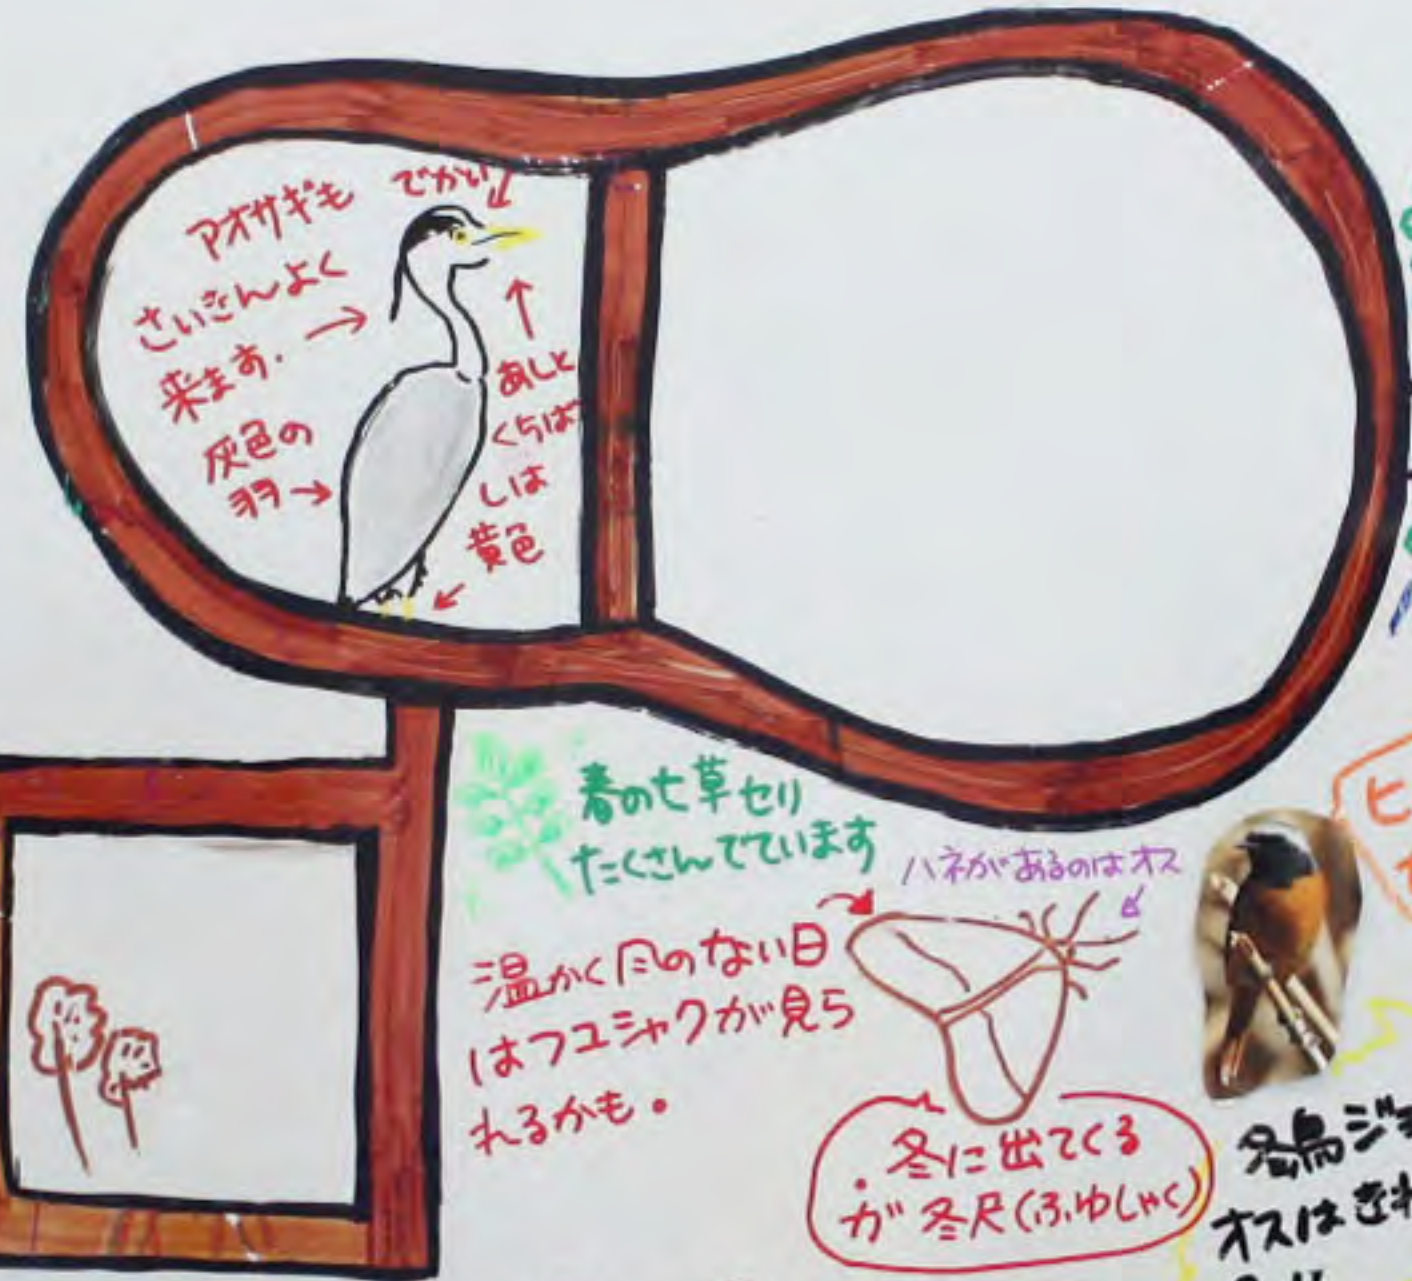 アオサギも
さいきんよく
来ます.
灰色の
羽
でかい
あしと
くちば
しは
黄色
春の七草セリ
たくさんでています
ハネがあるのはオス
温かく風のない日
はフユシャクが見ら
れるかも。
.冬に出てくる
が冬尺(ふゆしゃく)
ヒ
冬鳥ジョ
オスはきれ